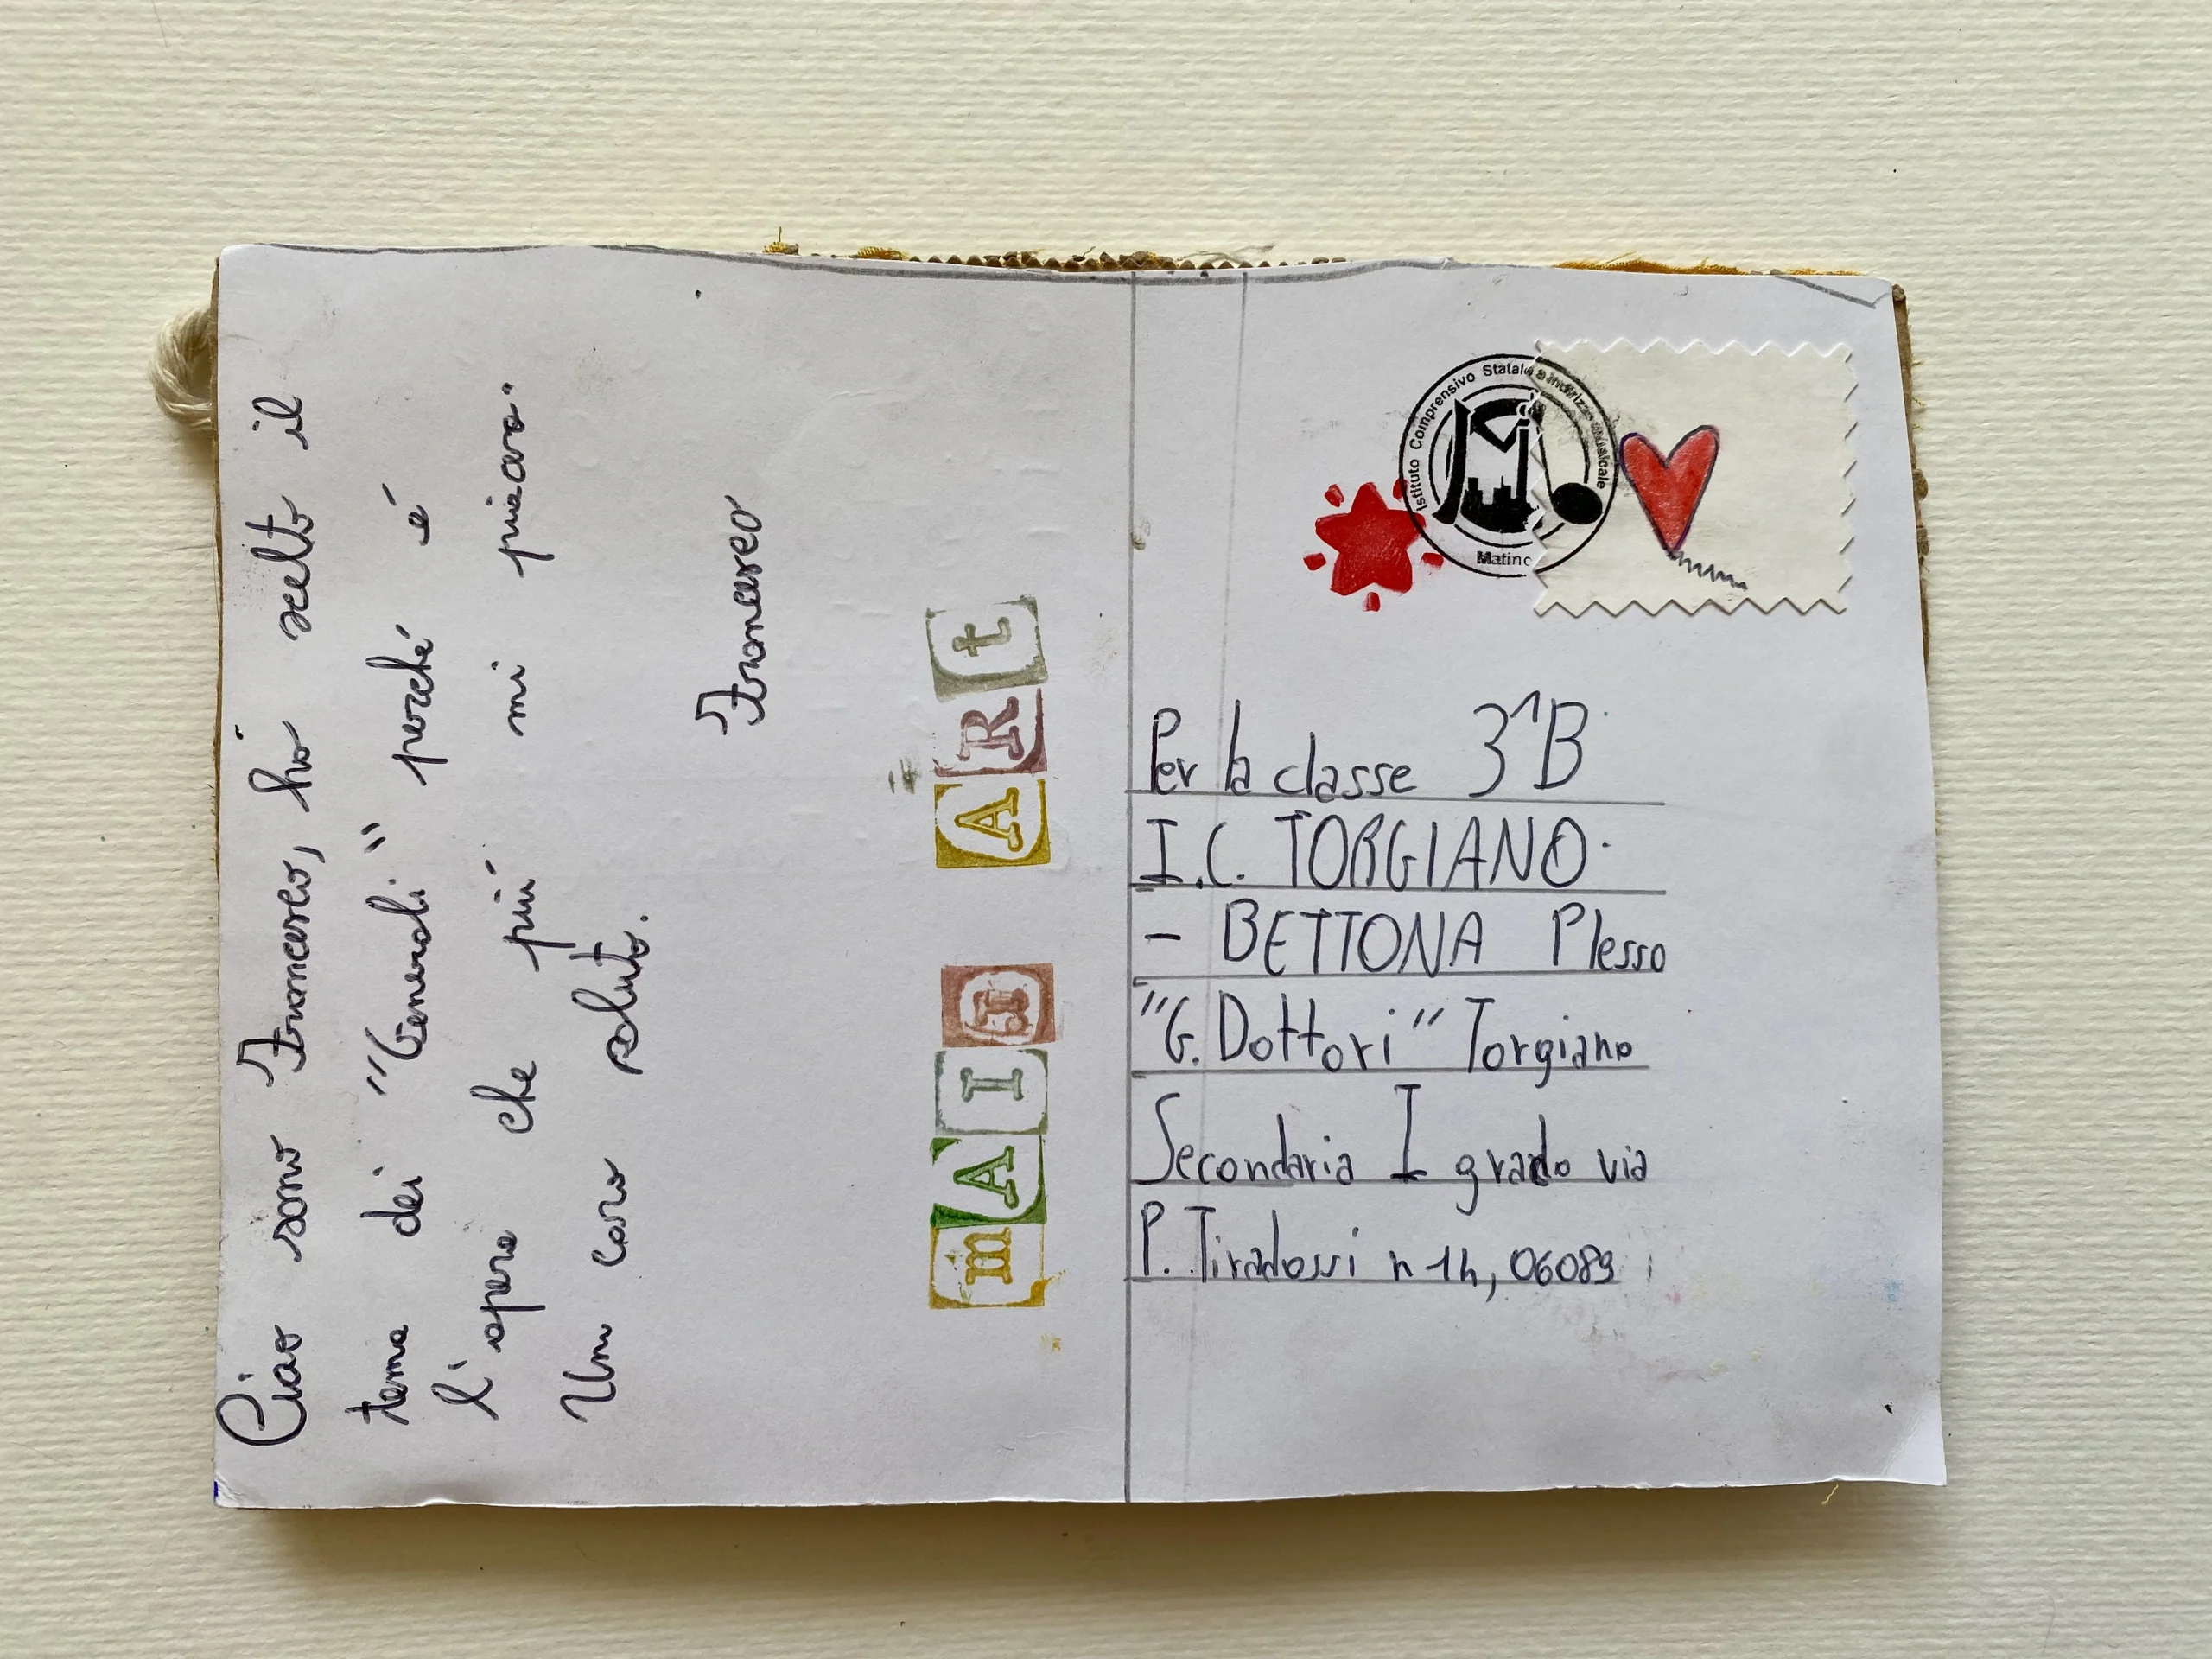 Ciao sono Francesco, hó scelto il
tema dei "Generali" perché é
l'opera che piú mi
Un caro saluto.
Francesco
mAIL ARt
Istituto Comprensivo Statale a indirizzo musicale
Matino
Per la classe 3^B
I.C. TORGIANO
- BETTONA Plesso
"G. Dottori" Torgiano
Secondaria I grado via
P. Tiradossi n 14, 06089